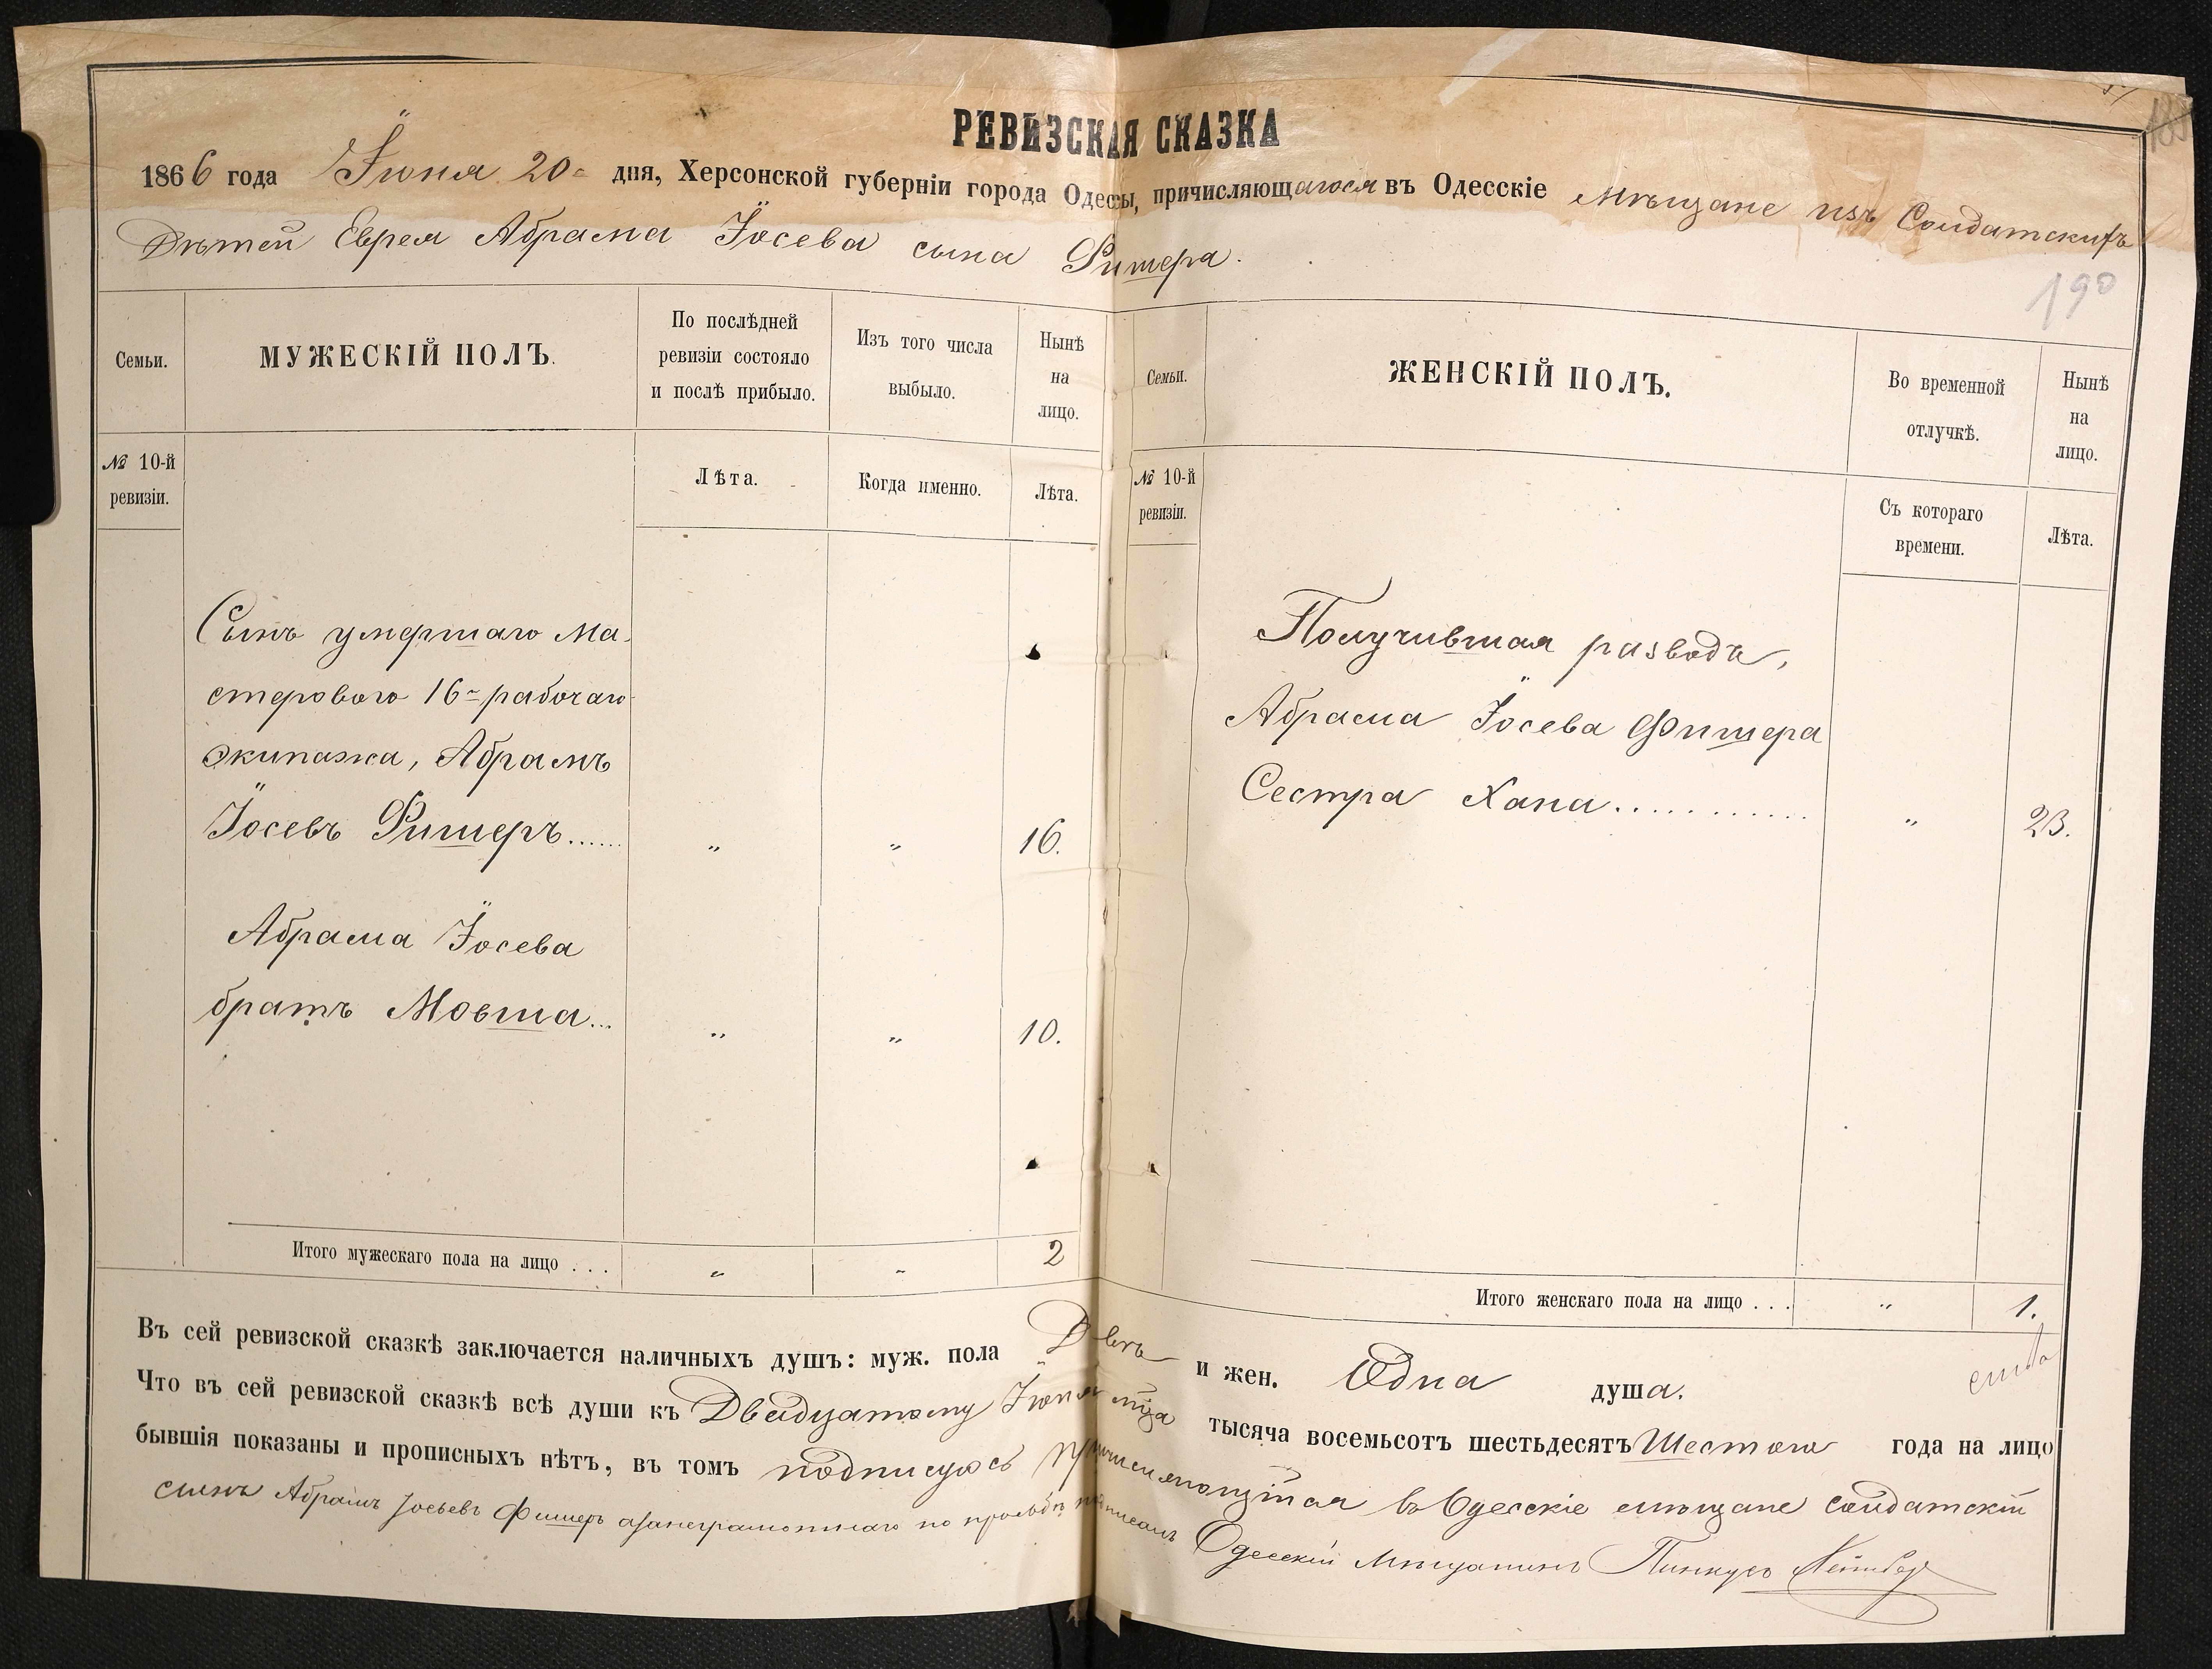 РЕВИЗСКАЯ СКАЗКА
1866 года Іюня 20 дня, Херсонской губерніи города Одессы, причисляющагося въ Одесскіе Мѣщане изъ Солдатскихъ
Дѣтей Еврея Абрама Іосева сына Фишера.
190
Семьи.
МУЖЕСКІЙ ПОЛЪ.
По послѣдней
ревизіи состояло
и послѣ прибыло.
Изъ того числа
выбыло.
Нынѣ
на
лицо.
№ 10-й
ревизіи.
Лѣта.
Когда именно.
Лѣта.
Сынъ умершаго Ма-
стероваго 16го рабочаго
экипажа, Абрамъ
Іосевъ Фишеръ...... „ „ 16.
Абрама Іосева
братъ Мовша... „ „ 10.
Итого мужескаго пола на лицо . . . „ „ 2
Семьи.
ЖЕНСКІЙ ПОЛЪ.
Во временной
отлучкѣ.
Нынѣ
на
лицо.
№ 10-й
ревизіи.
Съ котораго
времени.
Лѣта.
Получившая разводъ,
Абрама Іосева Фишера
Сестра Хана............ „ 23.
Итого женскаго пола на лицо . . . „ 1.
Въ сей ревизской сказкѣ заключается наличныхъ душъ: муж. пола Двѣ и жен. Одна душа.
Что въ сей ревизской сказкѣ всѣ души къ Двадцатому Іюня мца тысяча восемьсотъ шестьдесятъ Шестого года на лицо
бывшія показаны и прописныхъ нѣтъ, въ томъ подписуюсь причисляющійся въ Одесскіе мѣщане солдатскій
сынъ Абрамъ Іосьевъ Фишеръ а за неграмотнаго по прозьбѣ подписалъ Одесскій Мѣщанинъ Пинкусъ